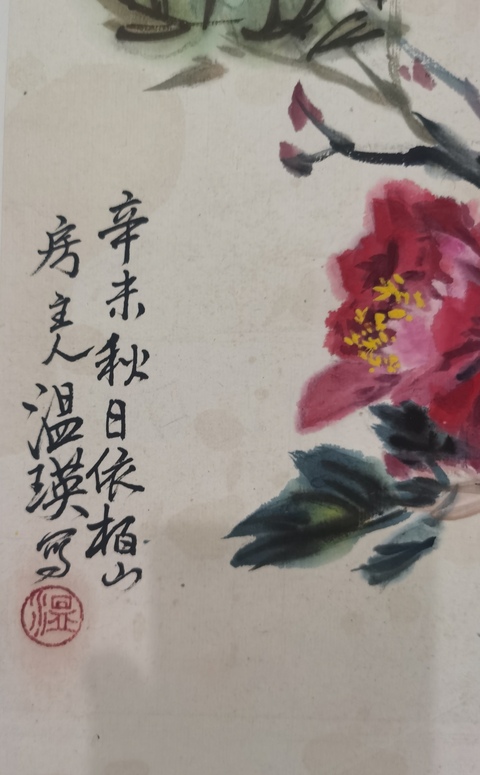 辛未秋日依柏山
房主人温瑛写
温